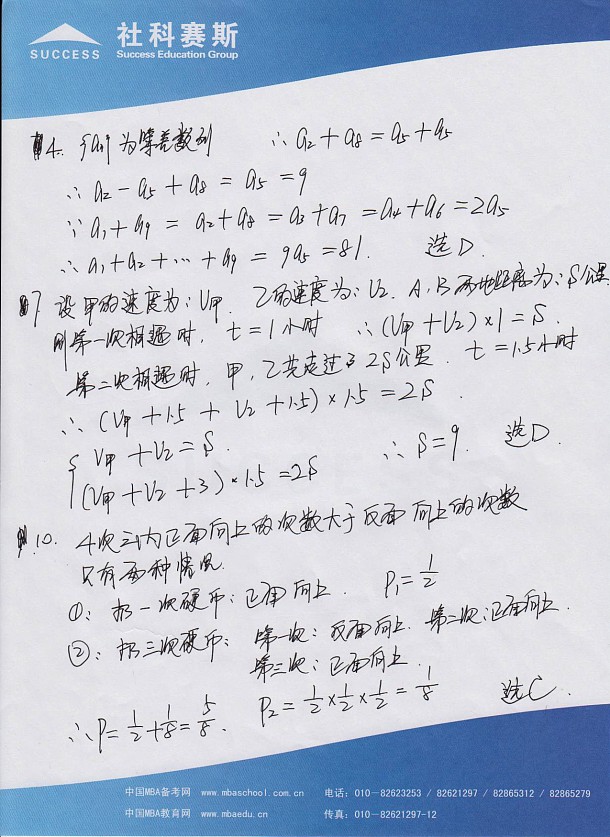 社科赛斯
SUCCESS Success Education Group
4. {an}为等差数列 ∴ a2 + a8 = a5 + a5
∴ a2 - a5 + a8 = a5 = 9
∵ a1 + a9 = a2 + a8 = a3 + a7 = a4 + a6 = 2a5
∴ a1 + a2 + … + a9 = 9a5 = 81. 选D.
7. 设甲的速度为: V甲. 乙的速度为: V乙. A.B两地距离为: S公里
则第一次相遇时, t = 1小时 ∴ (V甲 + V乙) × 1 = S.
第二次相遇时, 甲, 乙共走过了 2S公里. t = 1.5小时
∴ (V甲 + 1.5 + V乙 + 1.5) × 1.5 = 2S.
{ V甲 + V乙 = S.
(V甲 + V乙 + 3) × 1.5 = 2S ∴ S = 9. 选D.
10. 4次之内正面向上的次数大于反面向上的次数
只有两种情况
①: 抛一次硬币: 正面向上. P1 = 1/2
②: 抛三次硬币: 第一次: 反面向上. 第二次: 正面向上.
第三次: 正面向上.
∴ P = 1/2 + 1/8 = 5/8. P2 = 1/2 × 1/2 × 1/2 = 1/8 选C.
中国MBA备考网 www.mbaschool.com.cn 电话: 010-82623253 / 82621297 / 82865312 / 82865279
中国MBA教育网 www.mbaedu.cn 传真: 010-82621297-12